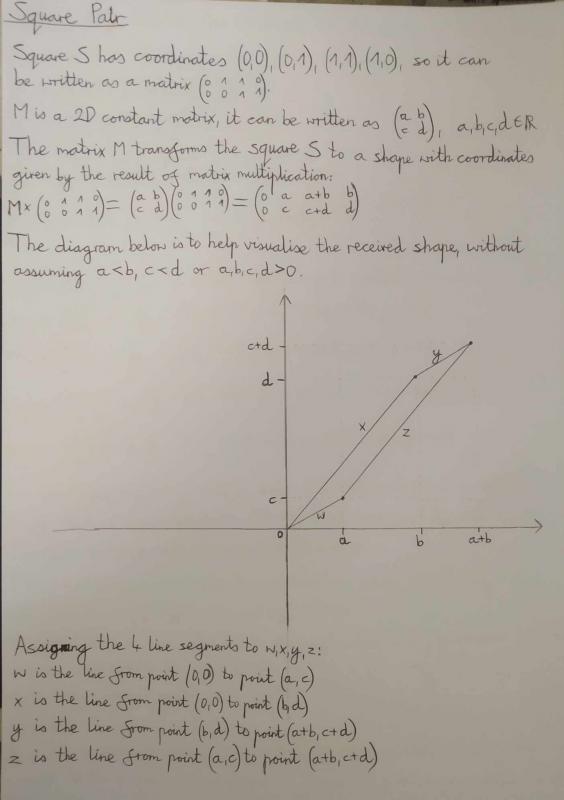 Square Pair
Square S has coordinates (0,0), (0,1), (1,1), (1,0), so it can
be written as a matrix (0 1 1 0
0 0 1 1).
M is a 2D constant matrix, it can be written as (a b
c d), a,b,c,d∈ℝ
The matrix M transforms the square S to a shape with coordinates
given by the result of matrix multiplication:
M×(0 1 1 0
0 0 1 1)=(a b
c d)(0 1 1 0
0 0 1 1)=(0 a a+b b
0 c c+d d)
The diagram below is to help visualise the received shape, without
assuming a<b, c<d or a,b,c,d>0.
c+d
y
d
x
z
c
w
0 a b a+b
Assigning the 4 line segments to w,x,y,z:
w is the line from point (0,0) to point (a,c)
x is the line from point (0,0) to point (b,d)
y is the line from point (b,d) to point (a+b,c+d)
z is the line from point (a,c) to point (a+b,c+d)